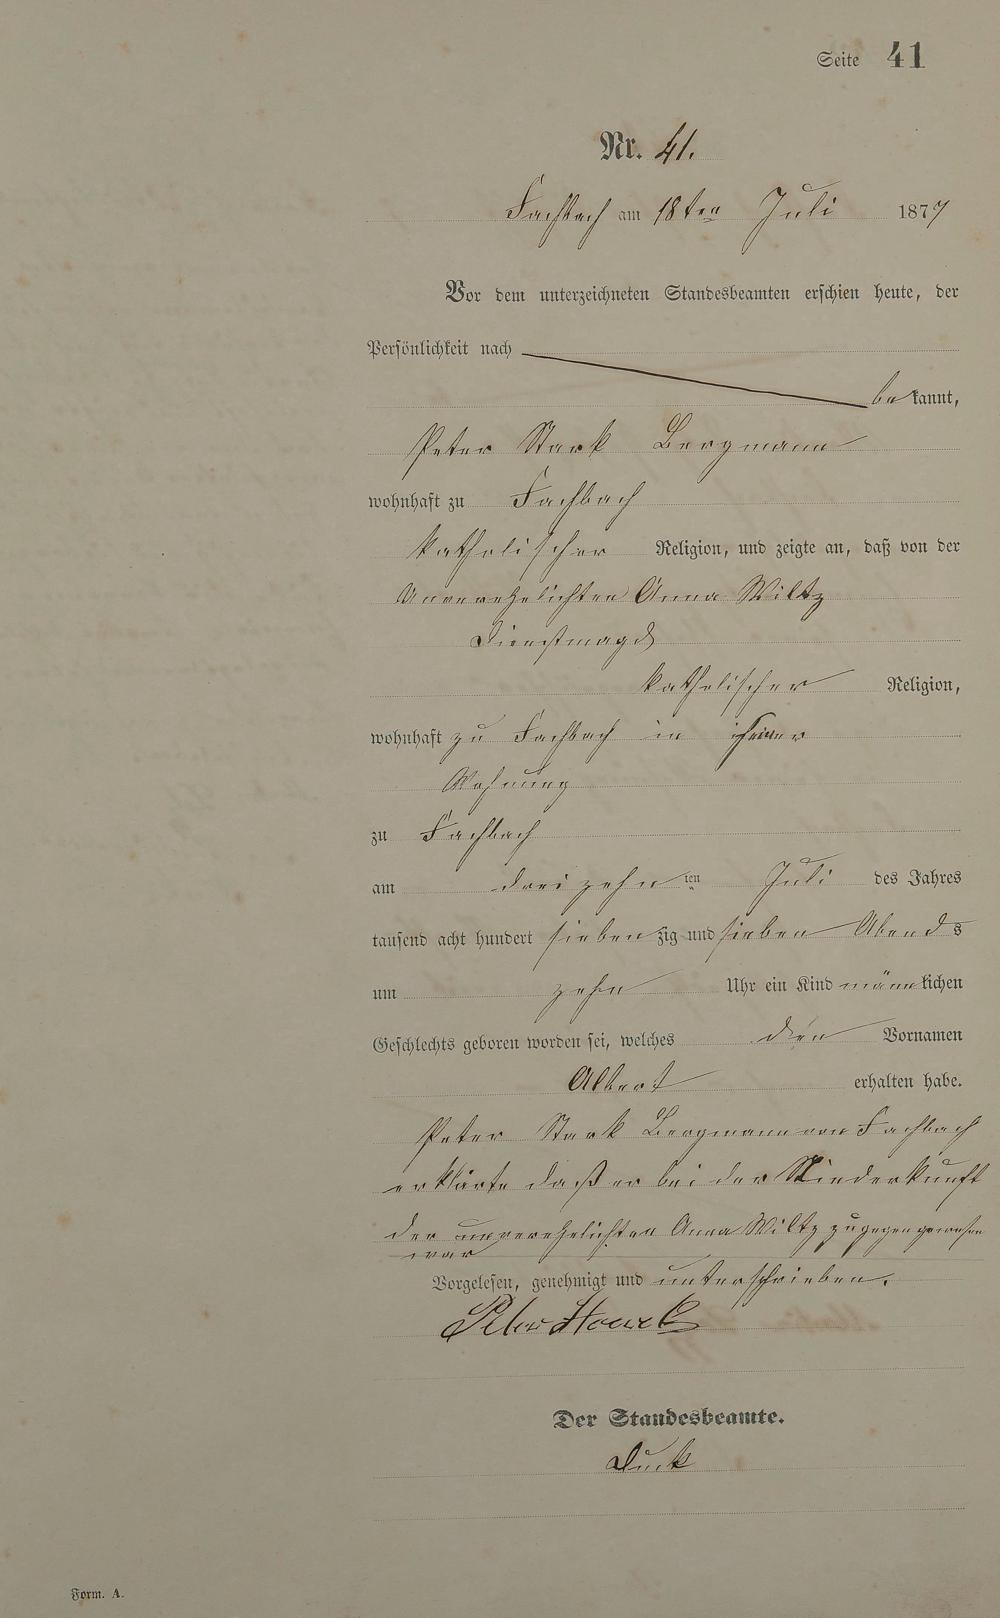 Seite 41
Nr. 41.
Fachbach am 18ten Juli 1877
Vor dem unterzeichneten Standesbeamten erschien heute, der
Persönlichkeit nach
bekannt,
Peter Stark Bergmann
wohnhaft zu Fachbach
katholischer Religion, und zeigte an, daß von der
Unverehelichten Anna Wiltz
Dienstmagd
katholischer Religion,
wohnhaft zu Fachbach in seiner
Wohnung
zu Fachbach
am dreizehn ten Juli des Jahres
tausend acht hundert siebenzig und sieben Abends
um zehn Uhr ein Kind männlichen
Geschlechts geboren worden sei, welches den Vornamen
Albert erhalten habe.
Peter Stark Bergmann von Fachbach
erklärte daß er bei der Niederkunft
der unverehelichten Anna Wiltz zugegen gewesen
war
Vorgelesen, genehmigt und unterschrieben.
Peter Starck
Der Standesbeamte.
Form. A.